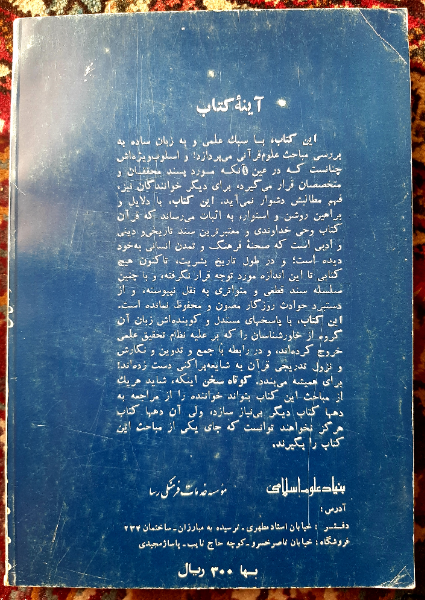 آینهٔ کتاب
این کتاب، بـا سبک علمی و به زبان ساده به
بررسی مباحث علوم‌قرآنی می‌پردازد؛ و اسلوب‌ویژه‌اش
چنانست کـه در عین آنکـه مـورد پسند محققـان و
متخصصان قرار می‌گیرد، برای دیگر خوانندگان نیز،
فهم مطالبش دشوار نمی‌آید. این کتاب، با دلایل و
براهین روشن و استوار، به اثبات می‌رساند که قرآن
کتاب وحی خداوندی و معتبرترین سند تاریخی‌و دینی
و ادبی است که صحنهٔ فرهنگ و تمدن انسانی به‌خود
دیده است؛ و در طول تاریخ بشریت، تاکنون هیچ
کتابی تا این اندازه مورد توجه قرار نگرفته، و با چنین
سلسله سند قطعی و متواتری به نقل نپیوسته، و از
دستبرد حوادث روزگار مصون و محفوظ نمانده است.
این کتاب، با پاسخهای مستدل و کوبنده‌اش زبان آن
گروه از خاورشناسان را که بر علیه نظام تحقیق علمی
خروج کرده‌اند، و در رابطه با جمع و تدوین و نگارش
و نزول تدریجی قرآن به شایعه‌پراکنی دست زده‌اند؛
برای همیشه می‌بندد. کوتاه سخن اینکه، شاید هریک
از مباحث این کتاب بتواند خواننده را از مراجعه به
دهها کتاب دیگر بی‌نیاز سازد، ولی آن دهها کتاب
هرگز نخواهند توانست که جای یکی از مباحث این
کتاب را بگیرند.
بنیاد علوم اسلامی مؤسسه خدمات فرهنگی رسا
آدرس:
دفـتـر : خیابان استاد مطهری ـ نرسیده به مبارزان ـ ساختمان ۲۳۴
فروشگاه : خیابان ناصرخسرو ـ کوچه حاج نایب ـ پاساژ مجیدی
بـها ۳۰۰ ریال